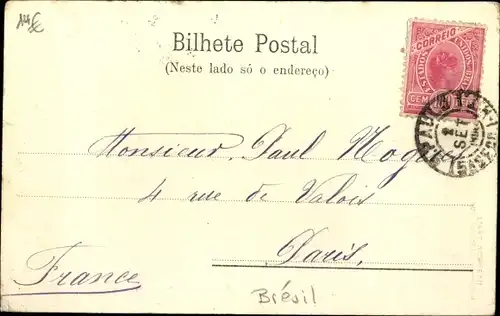 14€
Bilhete Postal
(Neste lado só o endereço)
CORREIO
ESTADOS UNIDOS
CEM
SET
Monsieur Paul
4 rue de Valois
Paris,
France
Brésil